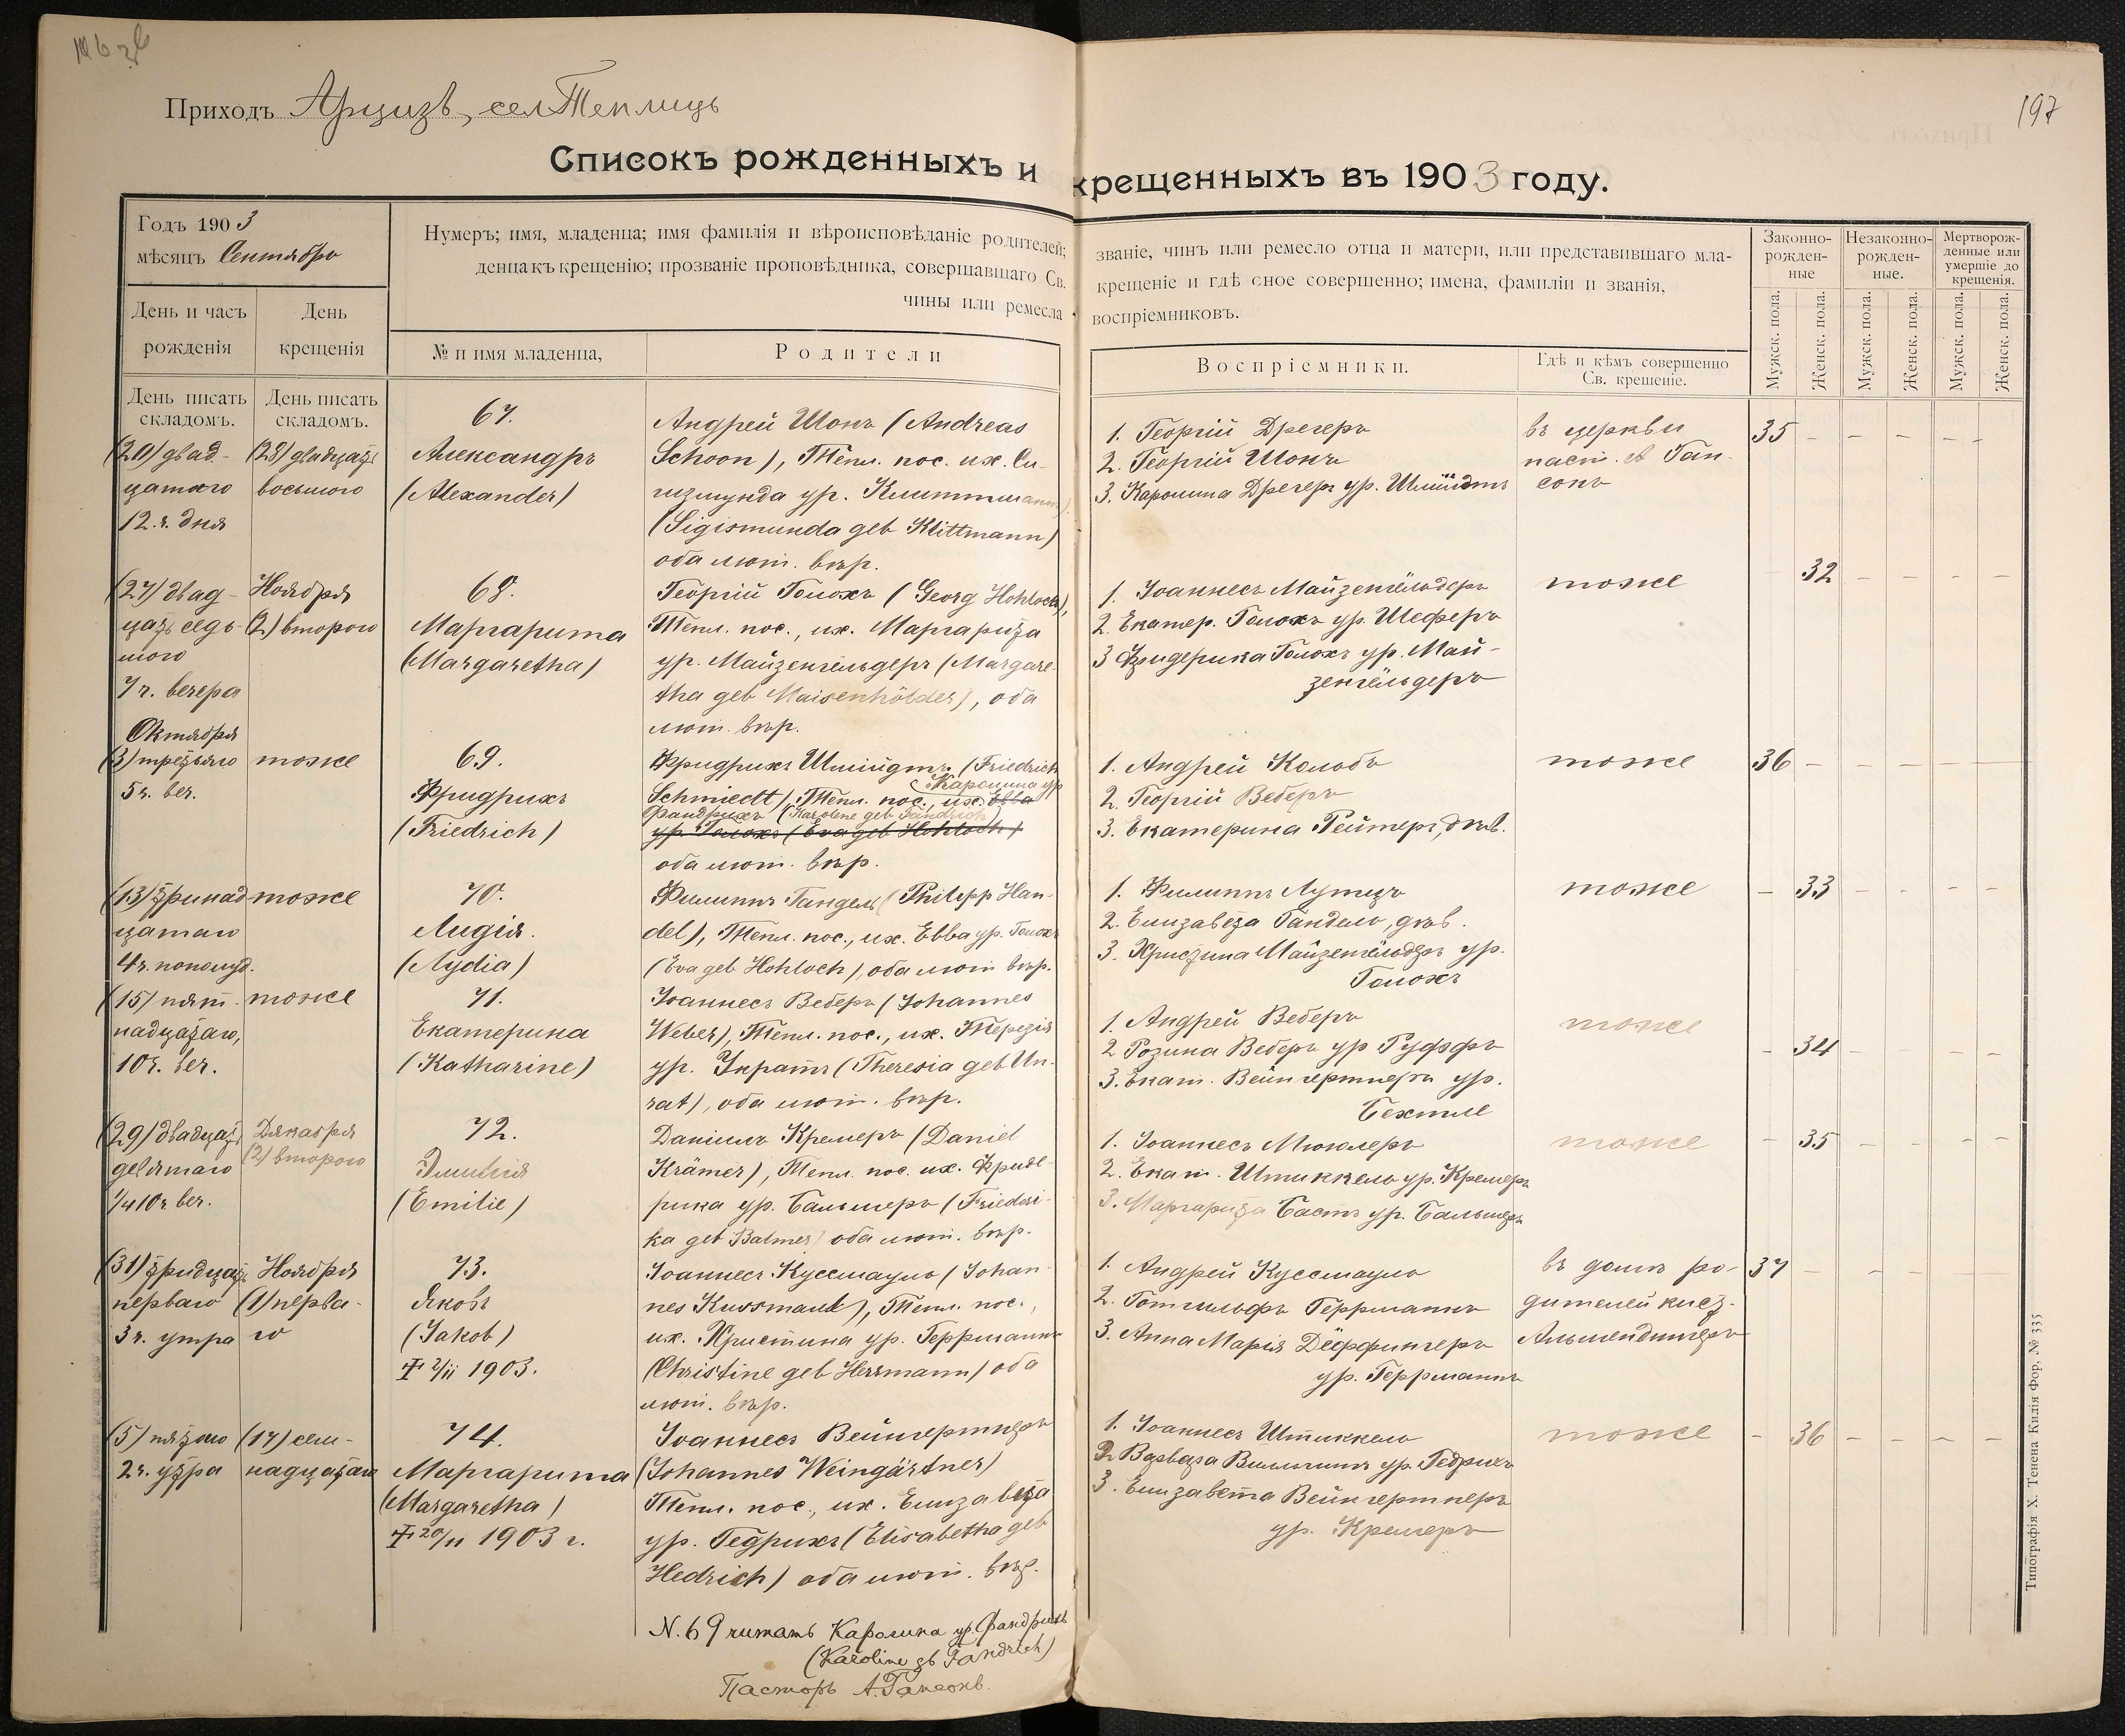 197
Приходъ Арцизъ, сел Теплицъ
Списокъ рожденныхъ и крещенныхъ въ 1903 году.
Годъ 1903
мѣсяцъ Сентябрь
Нумеръ; имя, младенца; имя фамилія и вѣроисповѣданіе родителей; званіе, чинъ или ремесло отца и матери, или представившаго мла-
денца къ крещенію; прозваніе проповѣдника, совершавшаго Св. крещеніе и гдѣ оное совершенно; имена, фамиліи и званія,
чины или ремесла воспріемниковъ.
Законно-
рожден-
ные
Незаконно-
рожден-
ные.
Мертворож-
денные или
умершіе до
крещенія.
День и часъ
рожденія
День
крещенія
№ и имя младенца,
Родители
Воспріемники.
Гдѣ и кѣмъ совершенно
Св. крещеніе.
Мужск. пола.
Женск. пола.
Мужск. пола.
Женск. пола.
Мужск. пола.
Женск. пола.
День писать
складомъ.
День писать
складомъ.
(20) двад-
цатаго
12 ч. дня
(28) двадцать
восьмого
67.
Александръ
(Alexander)
Андрей Шонъ (Andreas
Schoon), Тепл. пос. их. Си-
гизмунда ур. Клиттманъ
(Sigismunda geb Klittmann)
оба лют. вѣр.
1. Георгій Дрегеръ
2. Георгій Шонъ
3. Каролина Дрегеръ ур. Шмидтъ
въ церкви
паст. А Ган-
сонъ
35 – – – – –
(27) двад-
цать седь-
мого
7 ч. вечера
Ноября
(2) второго
68.
Маргарита
(Margaretha)
Георгій Голохъ (Georg Hohloch),
Тепл. пос., их. Маргарита
ур. Майзенгёльдеръ (Margare-
tha geb Maisenhölder), оба
лют. вѣр.
1. Іоаннесъ Майзенгёльдеръ
2. Екатер. Голохъ ур. Шеферъ
3 Фридерика Голохъ ур. Май-
зенгёльдеръ
тоже
32 – – – –
Октября
(3) третьяго
5 ч. веч.
тоже
69.
Фридрихъ
(Friedrich)
Фридрихъ Шмидтъ (Friedrich
Каролина ур
Schmiedt), Тепл. пос., их. Евва
Фандрихъ (Karoline geb Fandrich)
ур. Голохъ (Eva geb Hohloch)
оба лют. вѣр.
1. Андрей Кольбъ
2. Георгій Веберъ
3. Екатерина Рейтеръ, дѣв.
тоже
36 – – – – –
(13) тринад
цатаго
4 ч. пополуд.
тоже
70.
Лидія.
(Lydia)
Филиппъ Гандель (Philipp Han-
del), Тепл. пос., их. Евва ур. Голохъ
(Eva geb Hohloch), оба лют. вѣр.
1. Филиппъ Лутцъ
2. Елизавета Гандель, дѣв.
3. Христина Майзенгёльдеръ ур.
Голохъ
тоже
– 33 – – – –
(15) пят-
надцатаго,
10 ч. веч.
тоже
71.
Екатерина
(Katharine)
Іоаннесъ Веберъ (Johannes
Weber), Тепл. пос., их. Терезія
ур. Унратъ (Theresia geb Un-
rat), оба лют. вѣр.
1. Андрей Веберъ
2 Розина Веберъ ур Руффъ
3. Екат. Вейнгертнеръ ур.
Бехтле
тоже
– 34 – – –
(29) двадцать
девятаго
1/4 10 ч веч.
Декабря
(2) второго
72.
Эмилія
(Emilie)
Даніилъ Кремеръ (Daniel
Krämer), Тепл. пос. их. Фриде-
рика ур. Бальмеръ (Friederi-
ka geb Balmer) оба лют. вѣр.
1. Іоаннесъ Мюллеръ
2. Екат. Штиккель ур. Кремеръ
3. Маргарита Бастъ ур. Бальмеръ
тоже
– 35 – – – –
(31) тридцать
перваго
3 ч. утра
Ноября
(1) перва-
го
73.
Яковъ
(Jakob)
2/11 1903.
Іоаннесъ Куссмауль (Johan-
nes Kussmaul), Тепл. пос.,
их. Христина ур. Геррманнъ
(Christine geb Herrmann) оба
лют. вѣр.
1. Андрей Куссмауль
2. Готгильфъ Геррманнъ
3. Анна Марія Дёффингеръ
ур. Геррманнъ
въ домѣ ро-
дителей кист.
Альмендингеръ
37 – – – – –
(5) пятаго
2 ч. утра
(17) сем-
надцатаго
74.
Маргарита
(Margaretha)
20/11 1903 г.
Іоаннесъ Вейнгертнеръ
(Johannes Weingärtner)
Тепл. пос., их. Елизавета
ур. Гедрихъ (Elisabetha geb
Hedrich) оба лют. вѣр.
1. Іоаннесъ Штиккель
2. ур. Гедрихъ
3. Елизавета Вейнгертнеръ
ур. Кремеръ
тоже
– 36 – – – –
N. 69 читать Каролина ур. Фандрихъ
(Karoline gb Fandrich)
Пасторъ А. Гансонъ.
Типографія Х. Генена Килія Фор. № 335